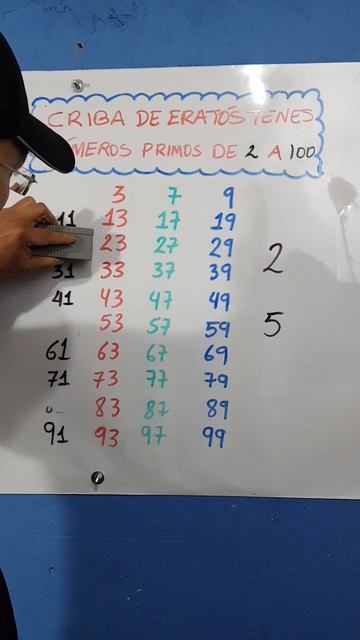 CRIBA DE ERATÓSTENES
ÚMEROS PRIMOS DE 2 A 100
3 7 9
11 13 17 19
23 27 29
31 33 37 39
2
41 43 47 49
53 57 59
5
61 63 67 69
71 73 77 79
83 87 89
91 93 97 99